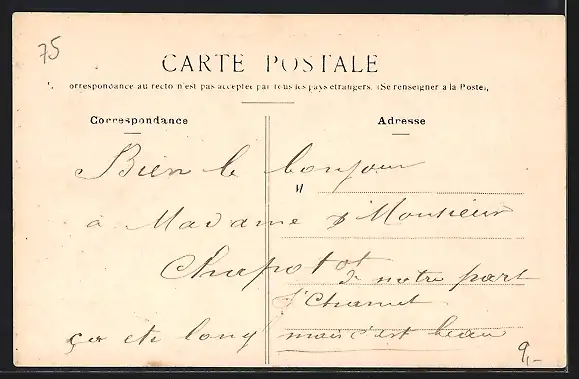 75
CARTE POSTALE
orrespondance au recto n'est pas acceptée par tous les pays étrangers. (Se renseigner à la Poste),
Correspondance
Adresse
Bien le bonjour
"
à Madame & Monsieur
Chapotot
de notre part
ça ete long mais c'est beau
9,-